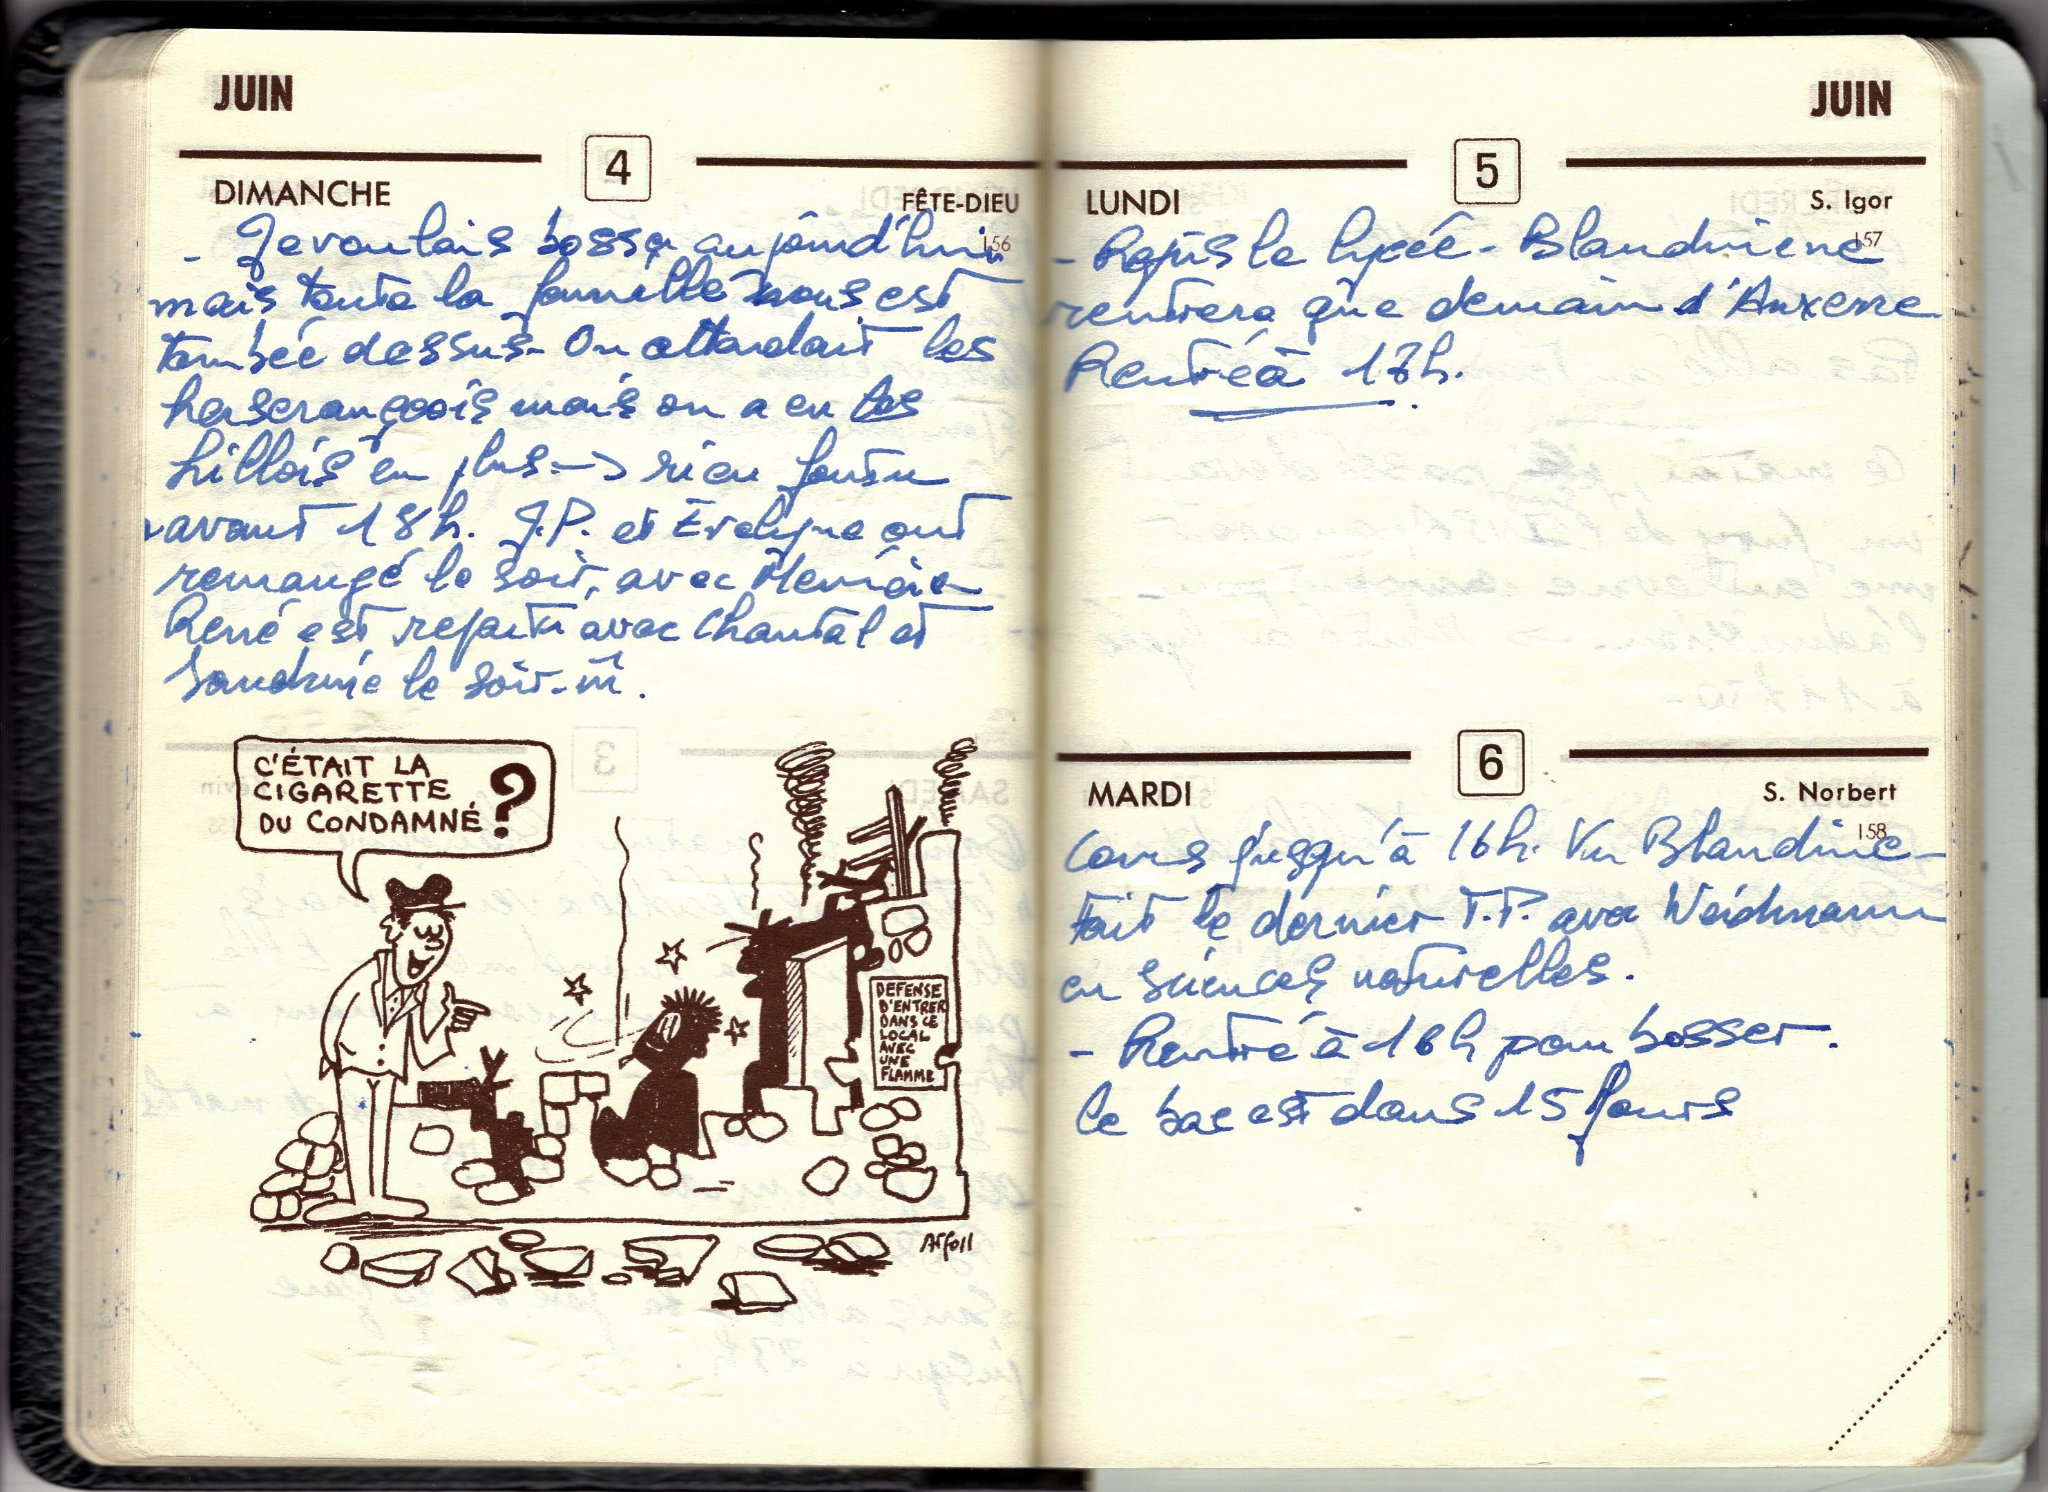 JUIN
4
DIMANCHE
FÊTE-DIEU
156
- Je voulais bosser aujourd'hui
mais toute la famille nous est
tombée dessus - On attendait les
herserangeois mais on a eu les
hillois en plus -> rien foutu
avant 18h. J.P. et Evelyne ont
remangé le soir, avec
René est reparti avec Chantal et
Sandrine le soir-m̂.
C'ÉTAIT LA
CIGARETTE
DU CONDAMNÉ ?
DEFENSE
D'ENTRER
DANS CE
LOCAL
AVEC
UNE
FLAMME
JUIN
5
LUNDI
S. Igor
157
- Repris le lycée - Blandine ne
rentrera que demain d'Auxerre
Rentré à 17h.
6
MARDI
S. Norbert
158
Cours jusqu'à 16h. Vu Blandine -
Fait le dernier T.P. avec Weidmann
en sciences naturelles.
- Rentré à 16h pour bosser.
le bac est dans 15 jours